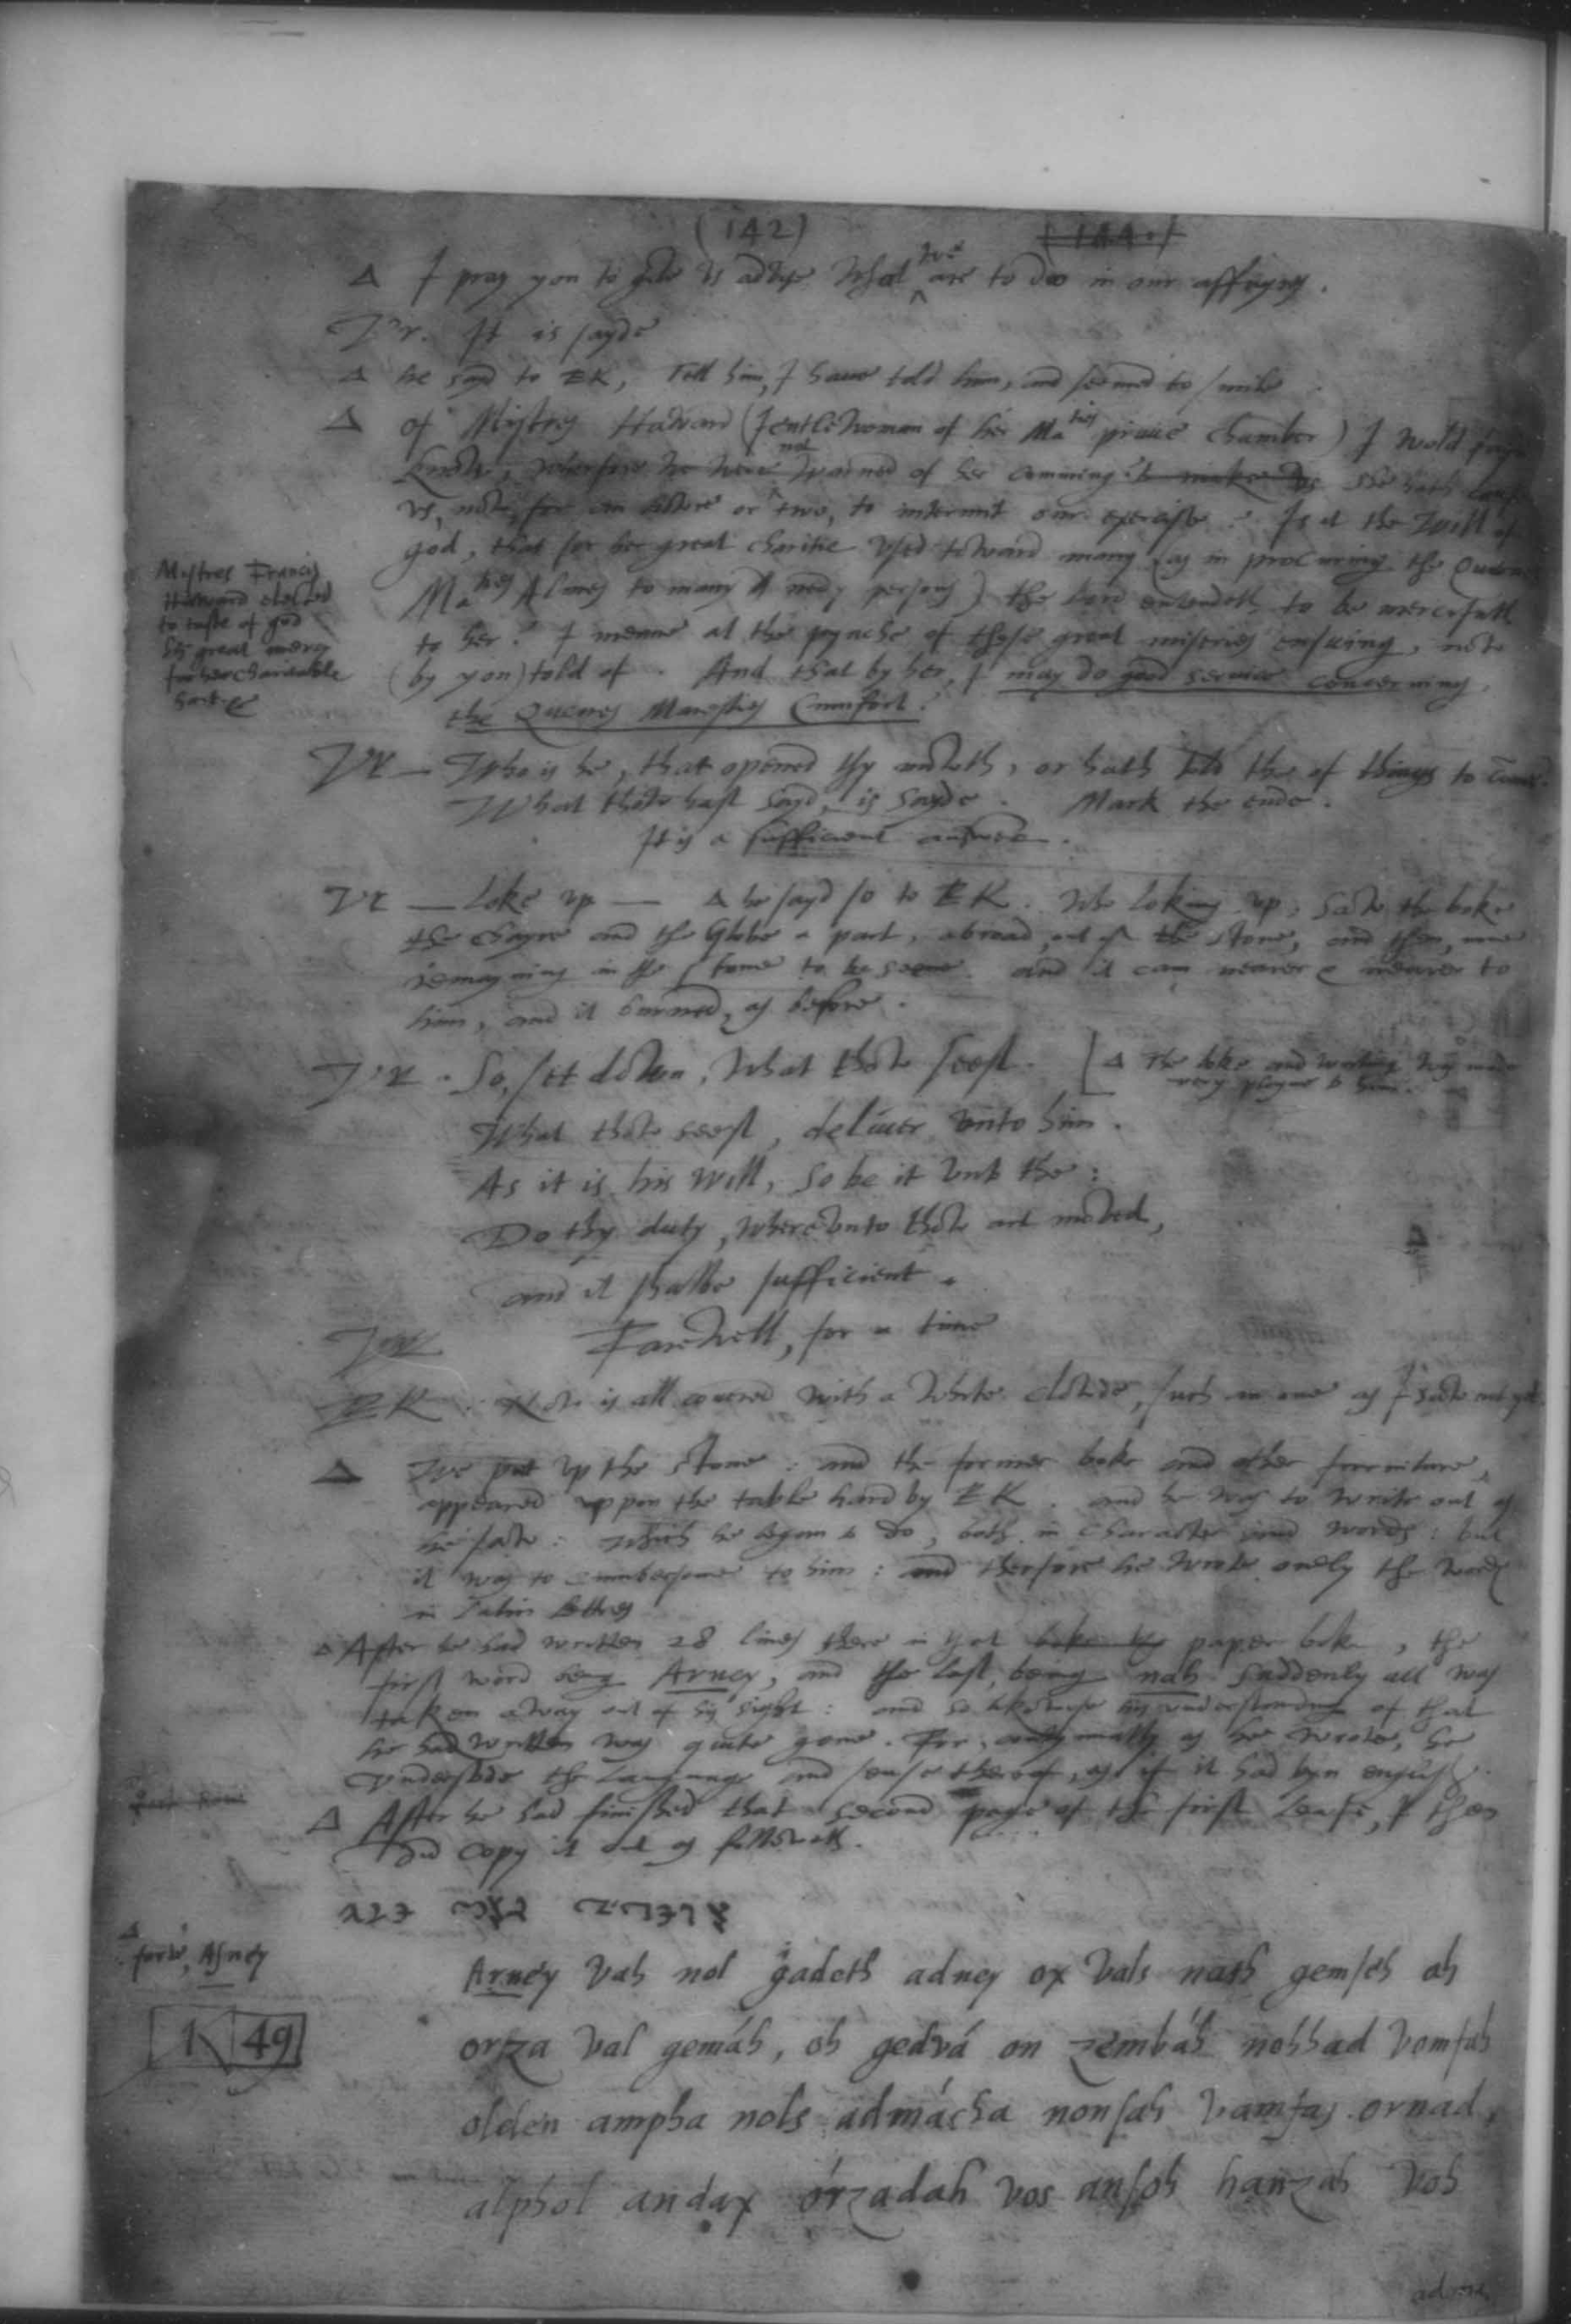 (142)
Δ I pray you to giue vs advise what we are to doo in our affayres.
Vr. It is sayde
Δ he sayd to EK, Tell him, I haue told him, and seemed to smile
Δ Of Mystres Haward (Jentlewoman of her Ma^ties privie chamber) I wold
knowe, wherfore we were not warned of her comming: she hath
vs, now, for an howre or two, to intermit our exercise? Is it the Will of
god, that for her great charitie vsed toward many (as in procuring the Quenes
Ma^ties Almes to many nedy persons) the lord entendeth to be mercifull
to her? I meane at the pynche of those great miseries ensuing, now
(by you) told of. And that by her, I may do good service concerning
the Quenes Maiesties Cumfort?
Mistres Francis
Haward elected
to taste of god
his great mercy
for her charitable
hart
Vr — Who is he, that opened thy mowth, or hath told the of things to
What thow hast sayd, is sayde. Mark the ende.
It is a sufficient answere.
Vr — Loke vp — Δ he sayd so to EK. Who loking vp, saw the boke
the chayre and the Globe a part, abroad, out of the stone, and then, none
remayning in the stone to be seene. and it cam nearer & nearer to
him, and it burned, as before.
Vr. So, set down, What thow seest. [Δ The boke and writing was made
very playne to him.
What thow seest, deliuer vnto him.
As it is his will, so be it vnto the:
Do thy duty, wherevnto thow art moved,
and it shalbe sufficient.
Farewell, for a time
EK. Now is all couered with a white clowde, such an one as I saw not yet
Δ We put vp the stone: and the former boke and other furniture,
appeared vppon the table hard by EK. and he was to write out as
he saw: which he began to do, both in character and words: but
it was to cumbersome to him: and therfore he wrote onely the words
in Latin lettres
Δ After he had written 28 lines there in that paper boke, the
first word being Arney, and the last, being nah: suddenly all was
taken away out of his sight: and so likewise his vnderstanding of that
he had written was quite gone. For, contynually as he wrote, he
vnderstode the Language and sense therof, as if it had byn english.
Δ After he had finished that second page of the first leafe, I then
did copy it out as followeth.
Δ
forte, Asney
1 49
Arney vah nol gadeth adney ox vals nath gemseh ah
orza val gemáh, oh gedvá on zembáh nohhad vomfah
olden ampha nols admácha nonsah vamfas ornad,
alphol andax órzadah vos ansoh hanzah voh